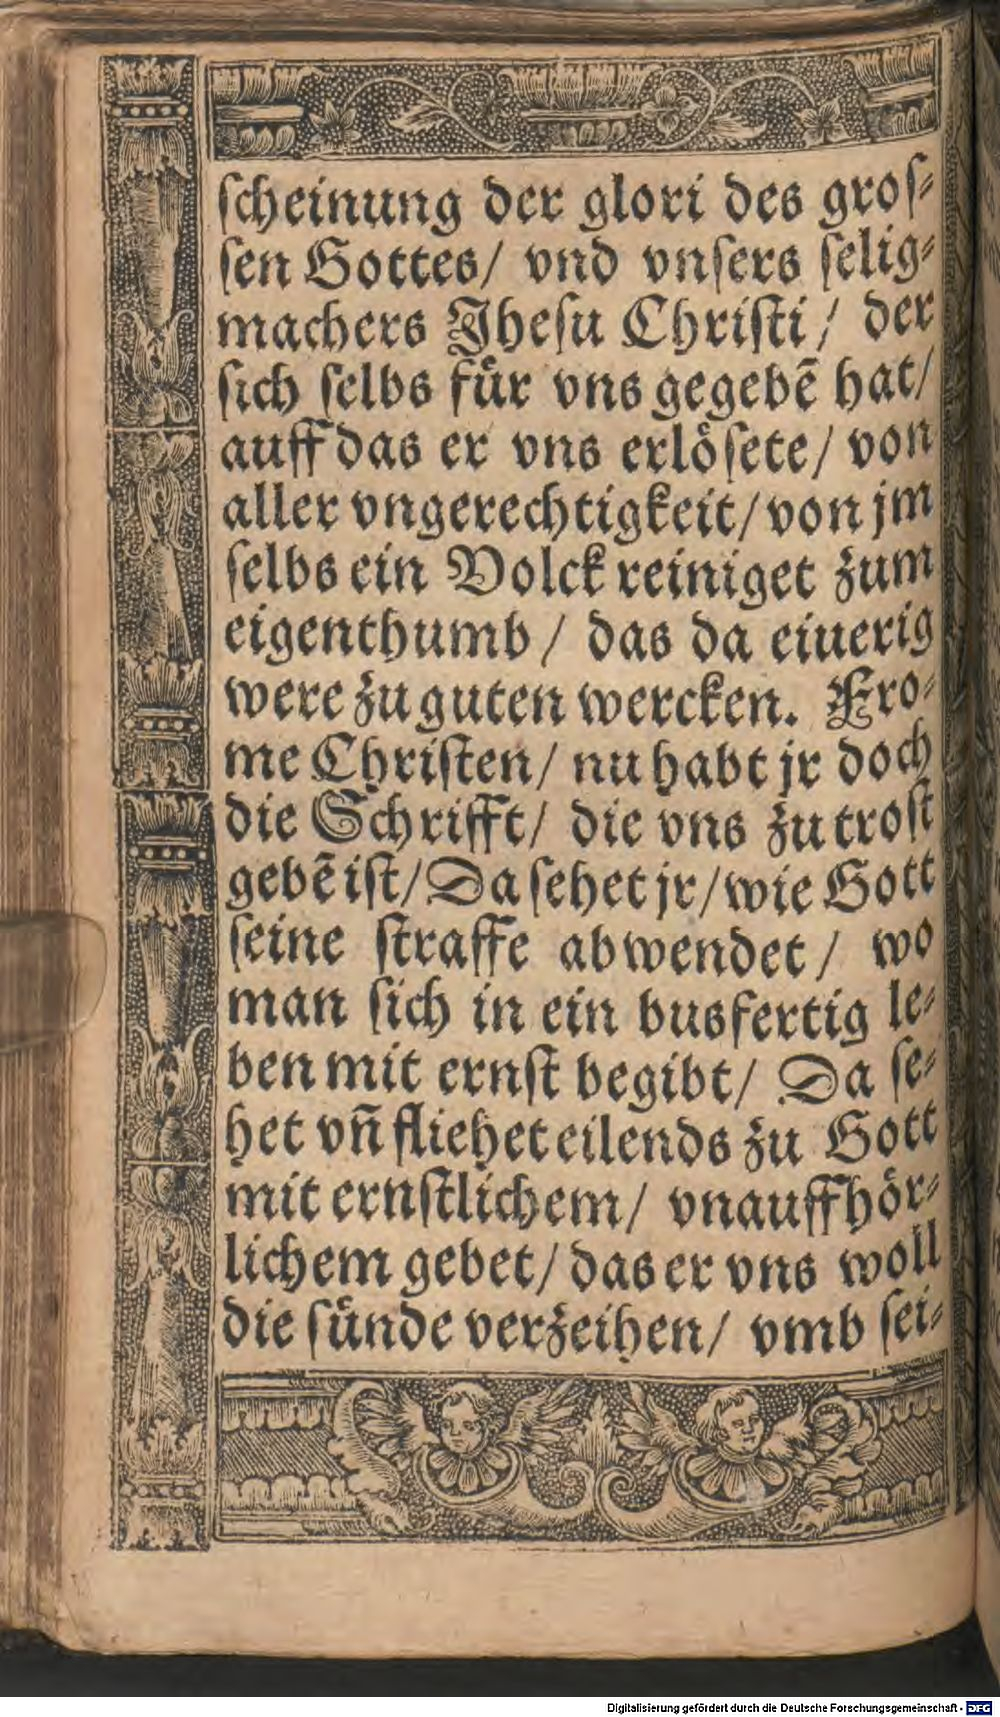 ſcheinung der glori des groſ⸗
ſen Gottes/ vnd vnſers ſelig⸗
machers Jheſu Chriſti/ der
ſich ſelbs fuͤr vns gegebē hat/
auff das er vns erloͤſete/ von
aller vngerechtigkeit/ von jm
ſelbs ein Volck reiniget zum
eigenthumb/ das da eiuerig
were zu guten wercken. Fro⸗
me Chriſten/ nu habt jr doch
die Schrifft/ die vns zu troſt
gebē iſt/ Da ſehet jr/ wie Gott
ſeine ſtraffe abwendet/ wo
man ſich in ein busfertig le⸗
ben mit ernſt begibt/ Da ſe⸗
het vñ fliehet eilends zu Gott
mit ernſtlichem/ vnauffhoͤr⸗
lichem gebet/ das er vns woll
die ſuͤnde verzeihen/ vmb ſei⸗
Digitalisierung gefördert durch die Deutsche Forschungsgemeinschaft - DFG